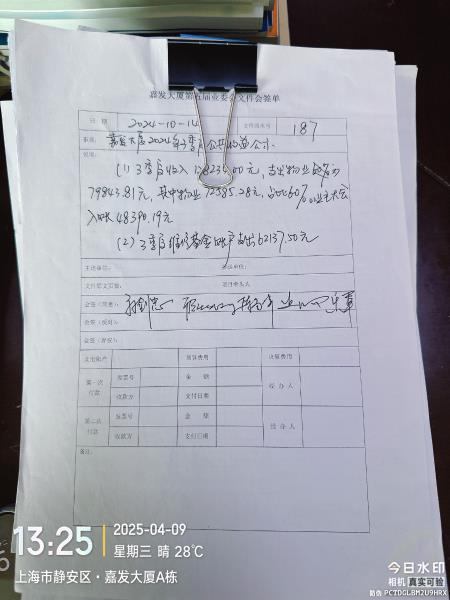 嘉发大厦第五届业委会文件会签单
日期 2024-10-14 文件流水号 187
事由: 嘉发大厦2024年3季度公共收益公示.
说明:
(1) 3季度收入 128234.00元, 支出物业
79843.81元, 其中物业 72585.28元, 占比60% 业主大会
入账48390.19元
(2) 3季度维修基金账户支出62137.50元
主送单位:
文件原文页数:
会签(同意):
会签(反对):
会签(弃权):
支出账户 预算费用 决算费用
第一次付款 发票号 金额 经办人
收款方 支付日期
第二次付款 发票号 金额 经办人
收款方 支付日期
备注:
13:25 2025-04-09
星期三 晴 28℃
上海市静安区·嘉发大厦A栋
今日水印
相机 真实可验
防伪 PCTDGLBM2U9HRX